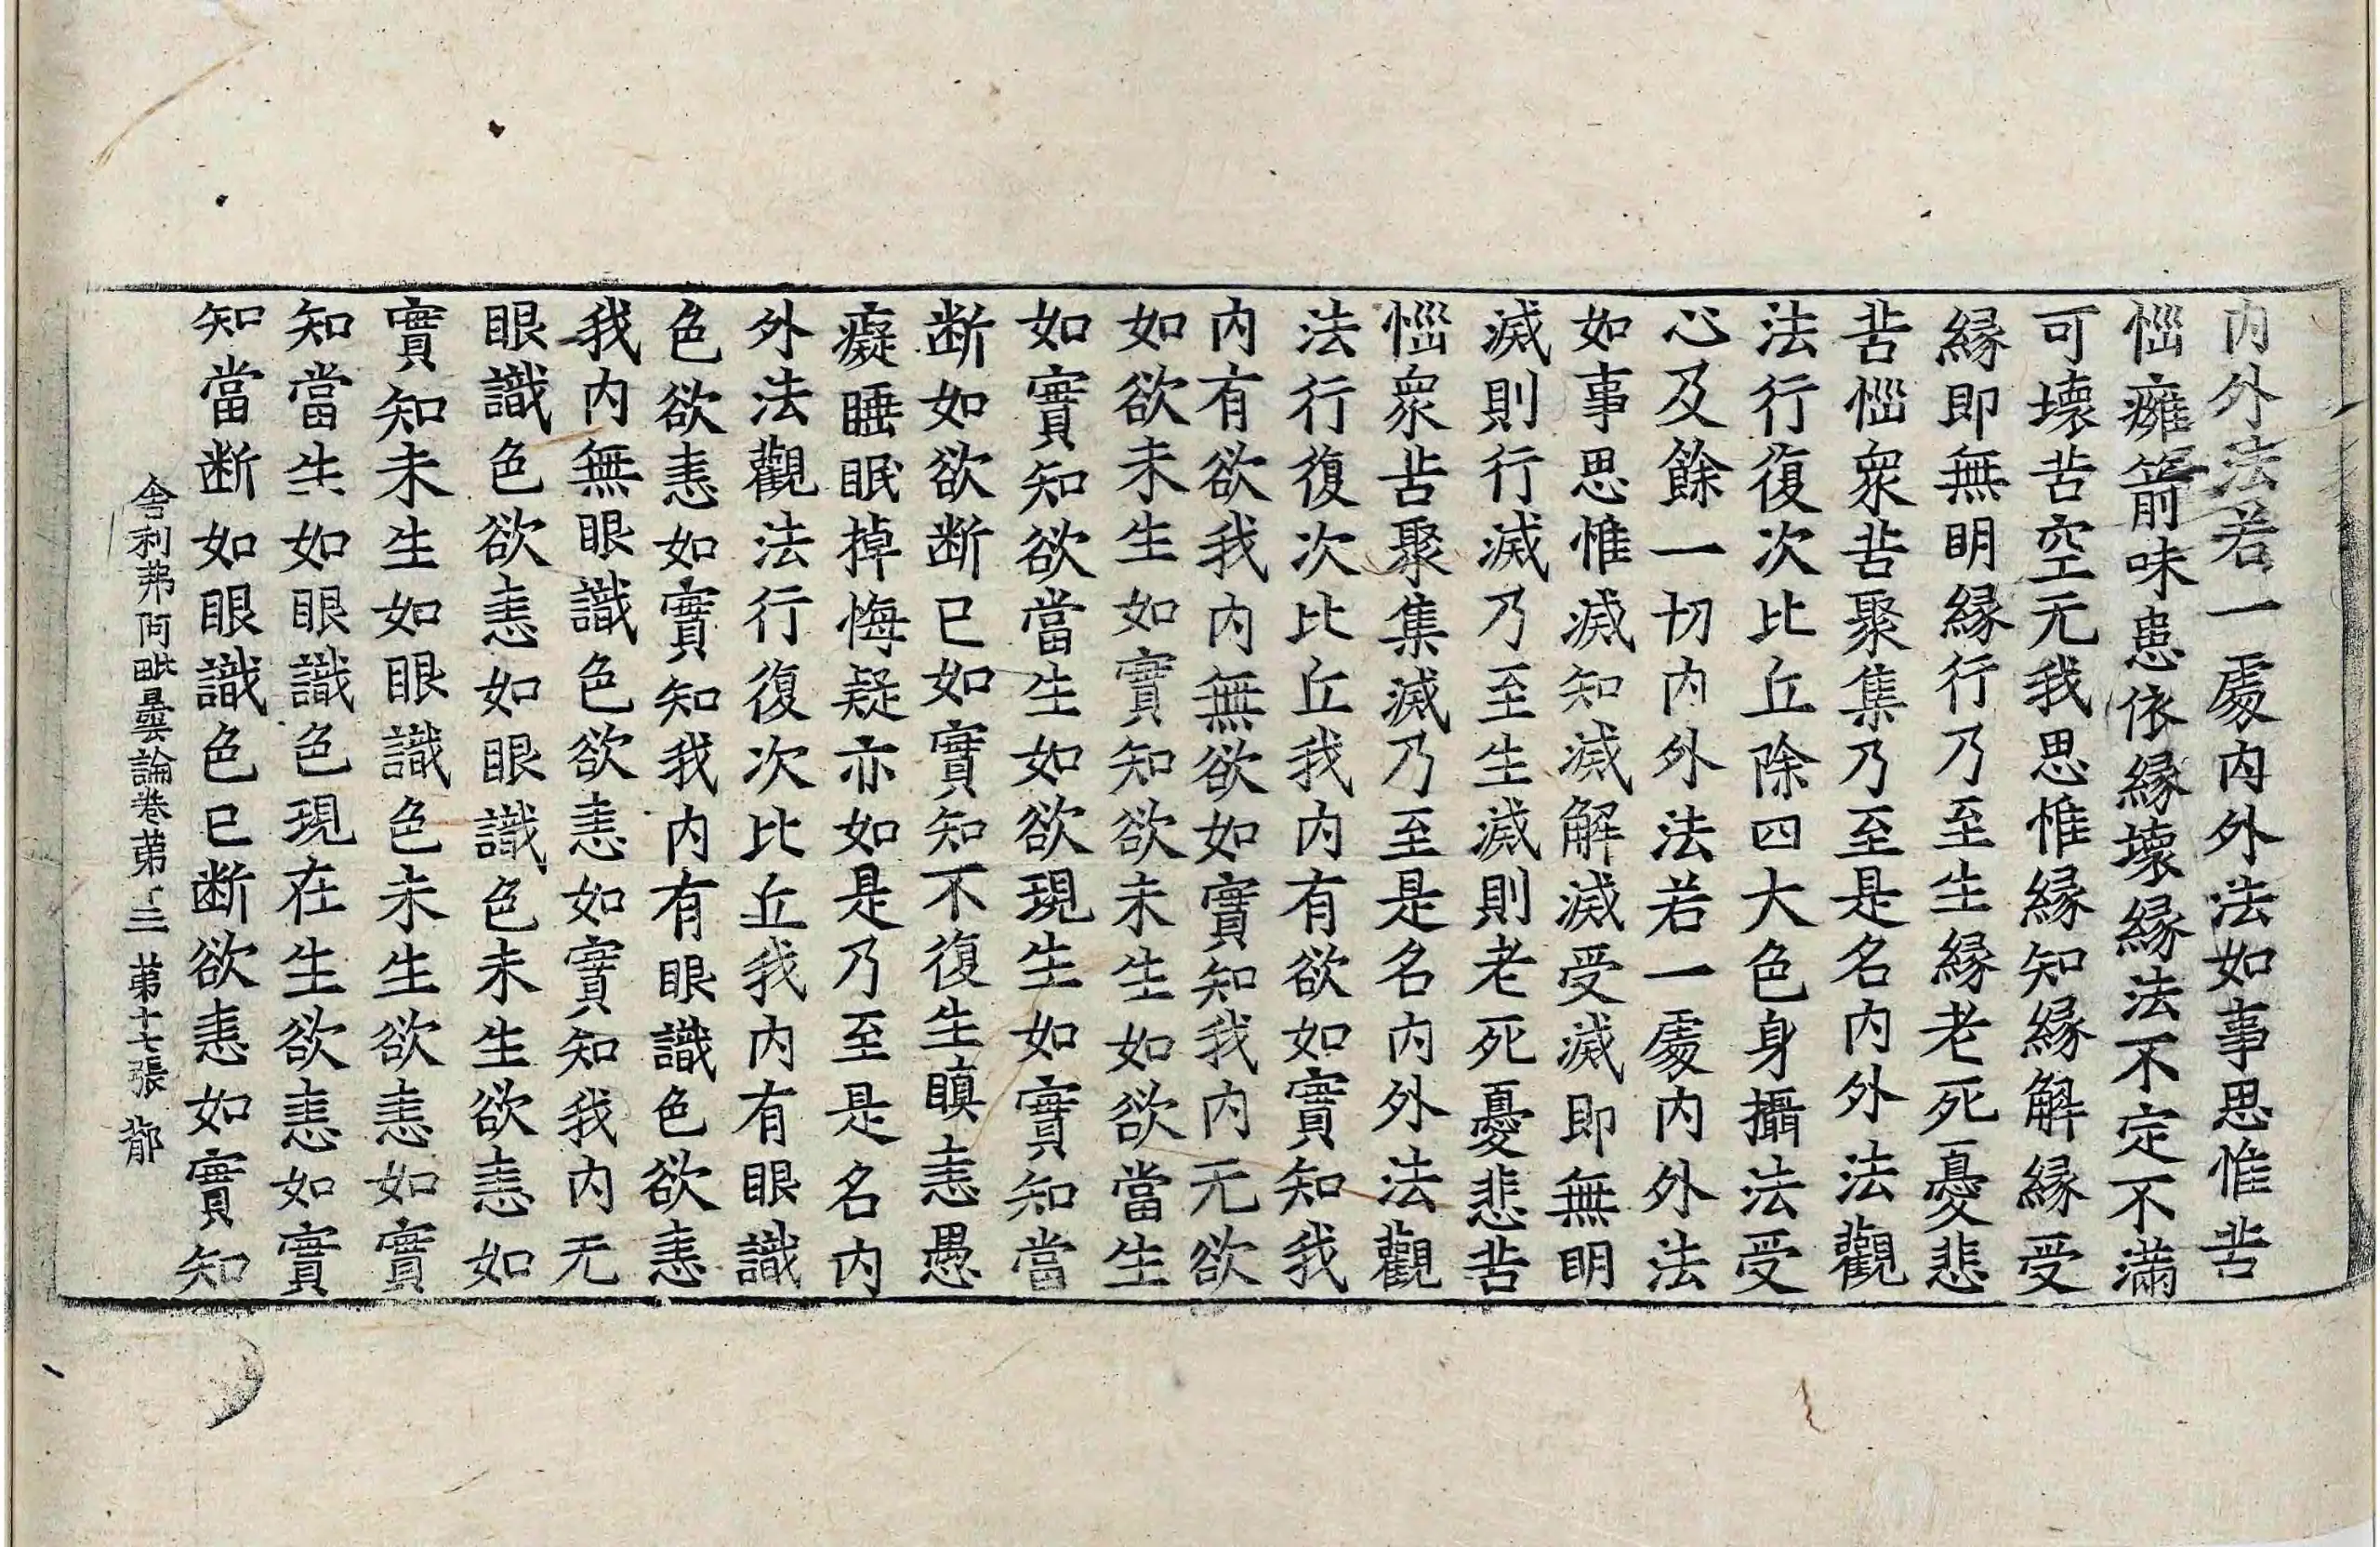 内外法若一處内外法如事思惟苦
惱癰箭味患依縁壞縁法不定不滿
可壞苦空无我思惟縁知縁解縁受
縁即無明縁行乃至生縁老死憂悲
苦惱衆苦聚集乃至是名内外法觀
法行復次比丘除四大色身攝法受
心及餘一切内外法若一處内外法
如事思惟滅知滅解滅受滅即無明
滅則行滅乃至生滅則老死憂悲苦
惱衆苦聚集滅乃至是名内外法觀
法行復次比丘我内有欲如實知我
内有欲我内無欲如實知我内无欲
如欲未生如實知欲未生如欲當生
如實知欲當生如欲現生如實知當
断如欲断已如實知不復生瞋恚愚
癡睡眠掉悔疑亦如是乃至是名内
外法觀法行復次比丘我内有眼識
色欲恚如實知我内有眼識色欲恚
我内無眼識色欲恚如實知我内无
眼識色欲恚如眼識色未生欲恚如
實知未生如眼識色未生欲恚如實
知當生如眼識色現在生欲恚如實
知當断如眼識色已断欲恚如實知
舎利弗阿毗曇論巻苐二 苐十七張 鄁